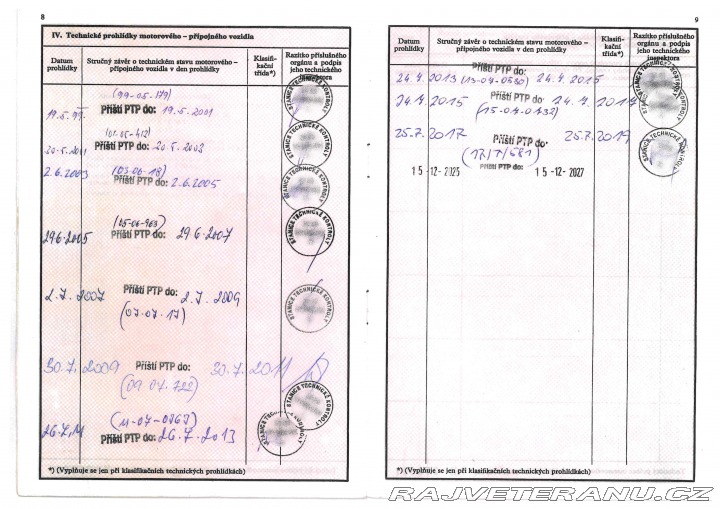 8
IV. Technické prohlídky motorového – přípojného vozidla
Datum prohlídky
Stručný závěr o technickém stavu motorového – přípojného vozidla v den prohlídky
Klasifikační třída*)
Razítko příslušného orgánu a podpis jeho technického inspektora
(99-05-179)
19.5.99 Příští PTP do: 19.5.2001
(01-05-412)
20.5.2001 Příští PTP do: 20.5.2003
(03-06-18)
2.6.2003 Příští PTP do: 2.6.2005
(05-06-963)
29.6.2005 Příští PTP do: 29.6.2007
2.7.2007 Příští PTP do: 2.7.2009
(07-07-17)
30.7.2009 Příští PTP do: 30.7.2011
(09-07-722)
(11-07-0767)
26.7.11 Příští PTP do: 26.7.2013
STANICE TECHNICKÉ KONTROLY
*) (Vyplňuje se jen při klasifikačních technických prohlídkách)
9
Datum prohlídky
Stručný závěr o technickém stavu motorového – přípojného vozidla v den prohlídky
Klasifikační třída*)
Razítko příslušného orgánu a podpis jeho technického inspektora
Příští PTP do:
24.4.2013 (13-04-0580) 24.4.2015
Příští PTP do:
24.4.2015 (15-04-0432) 24.4.2017
25.7.2017 Příští PTP do: 25.7.2019
(17/7/581)
15-12-2025 Příští PTP do: 15-12-2027
STANICE TECHNICKÉ KONTROLY
*) (Vyplňuje se jen při klasifikačních technických prohlídkách)
RAJVETERANU.CZ